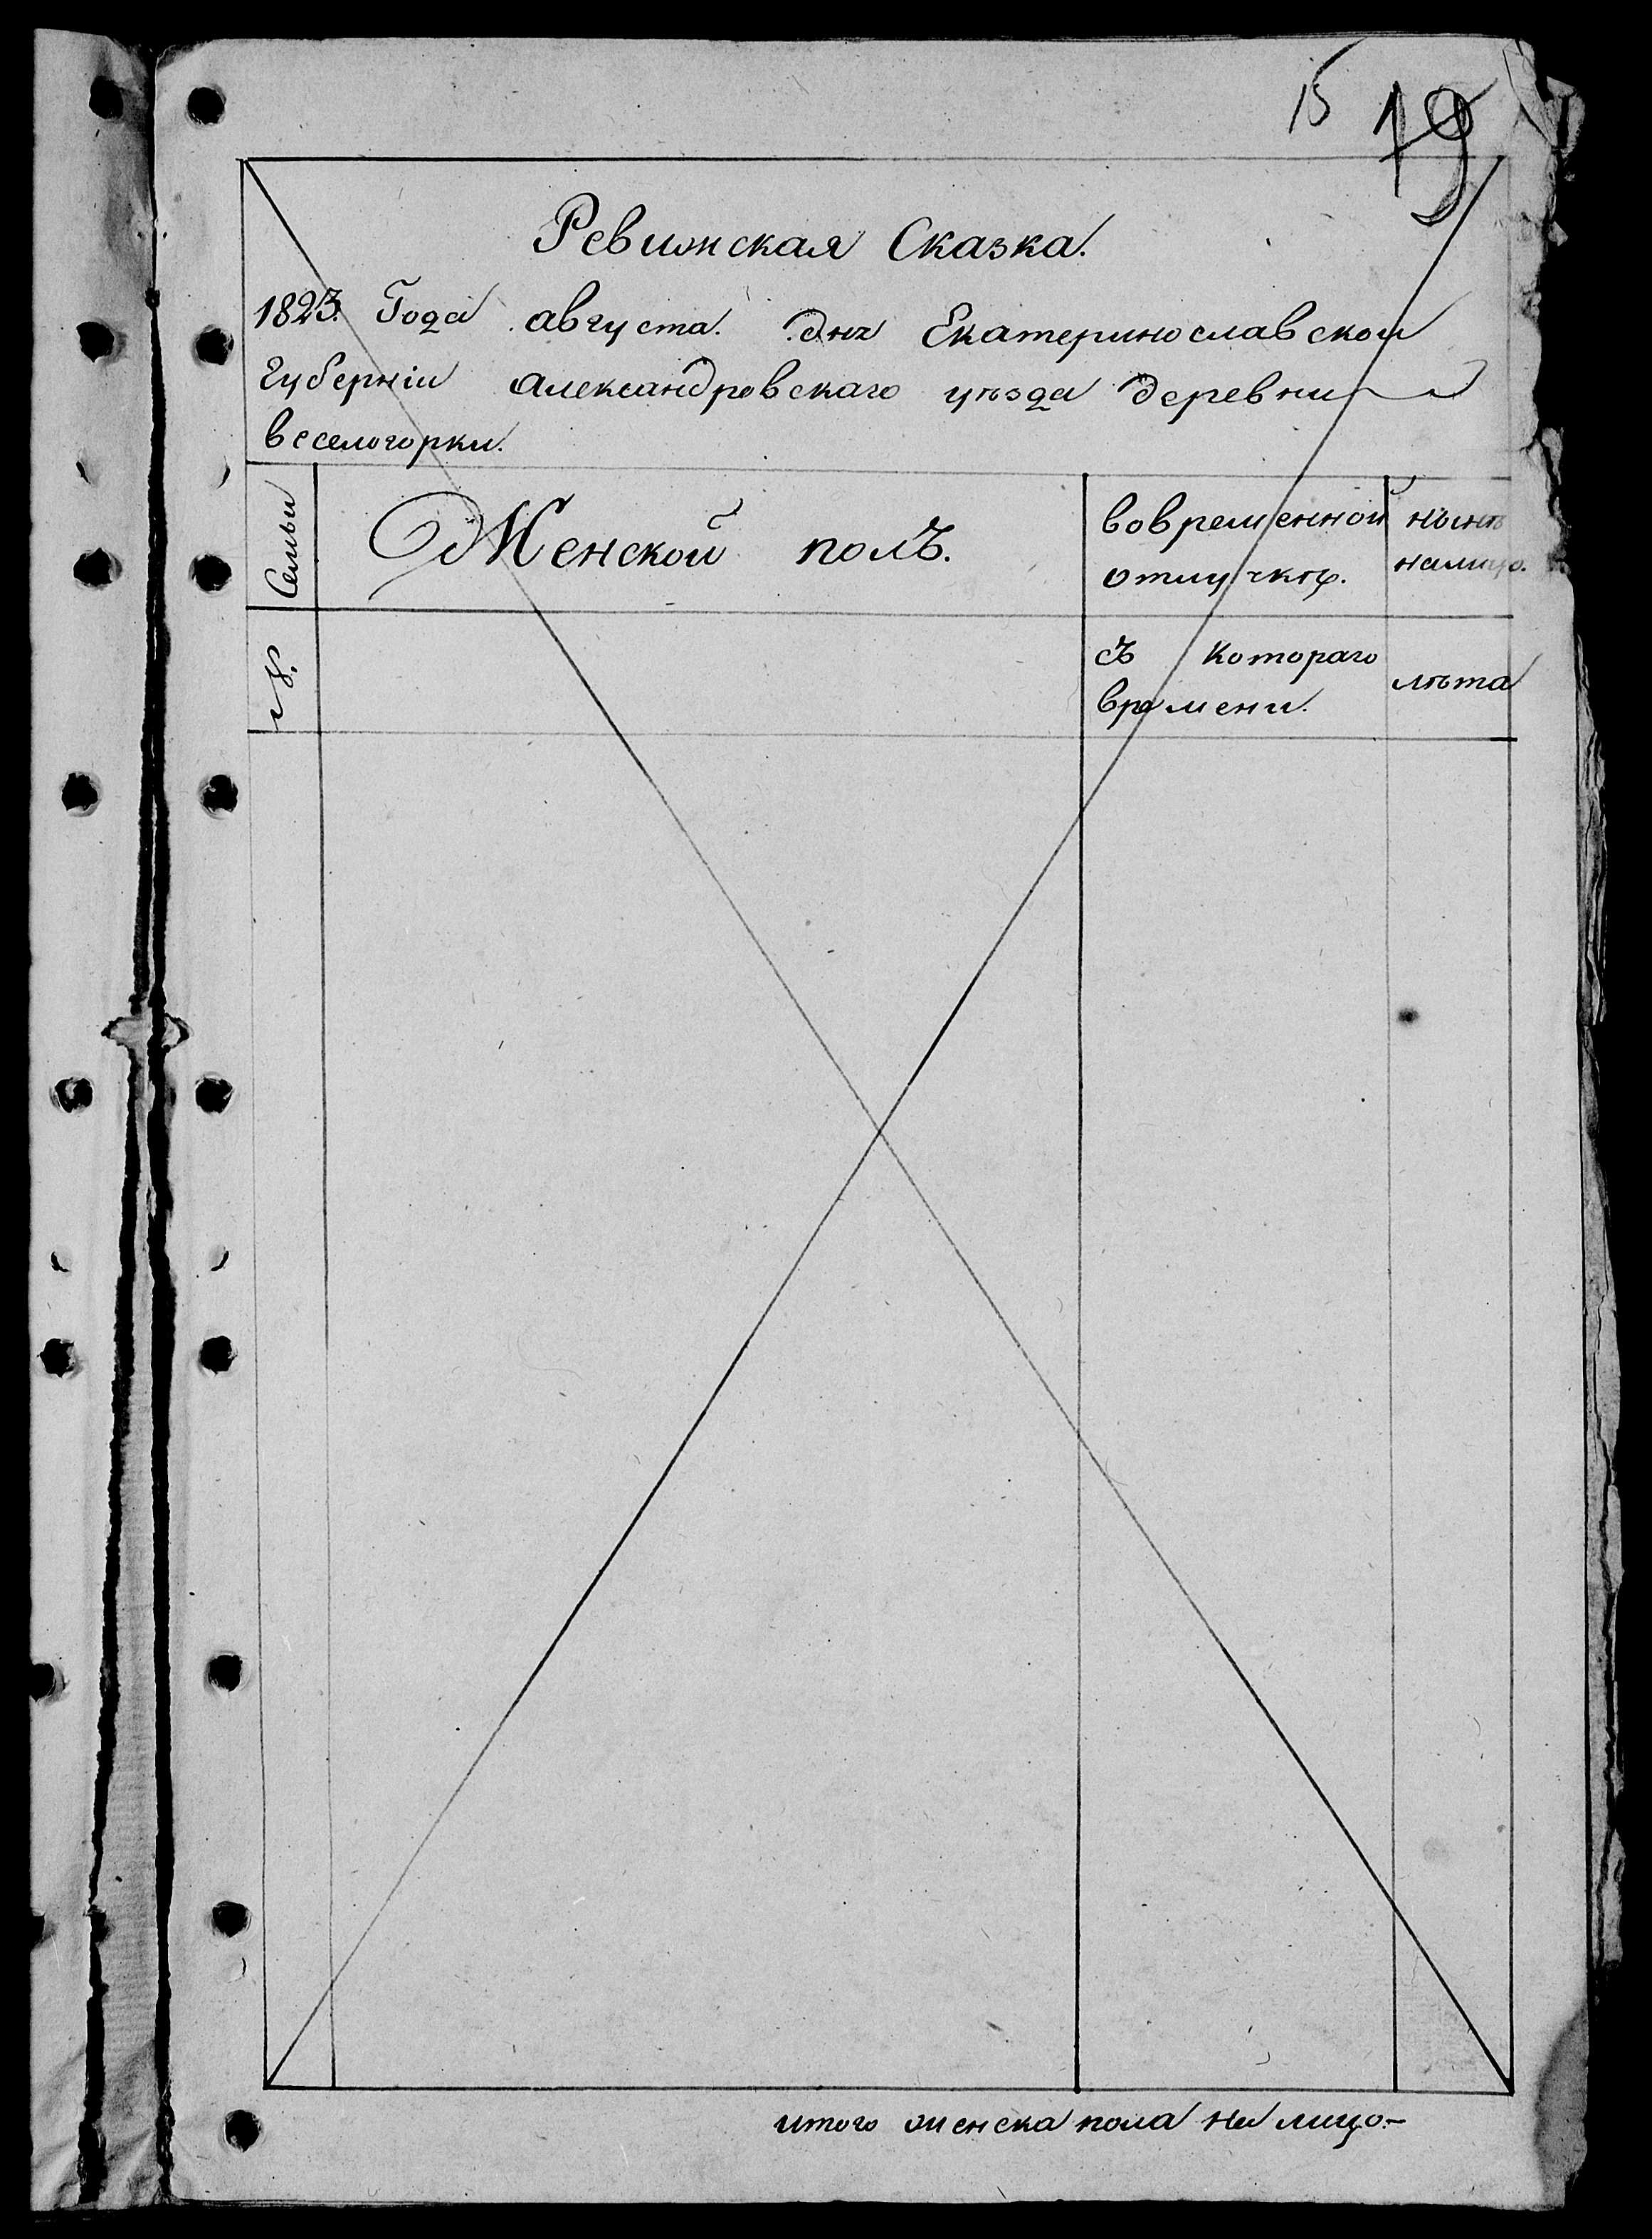 15 19
Ревижская Сказка.
1823. Года августа. дня Екатеринославской
Губерніи Александровскаго уѣзда деревни
веселогорки.
Семьи
Женской полъ.
вовременной
отлучкѣ.
нынѣ
налицо.
№.
съ Котораго
времени.
лѣта
итого женска пола на лицо.-